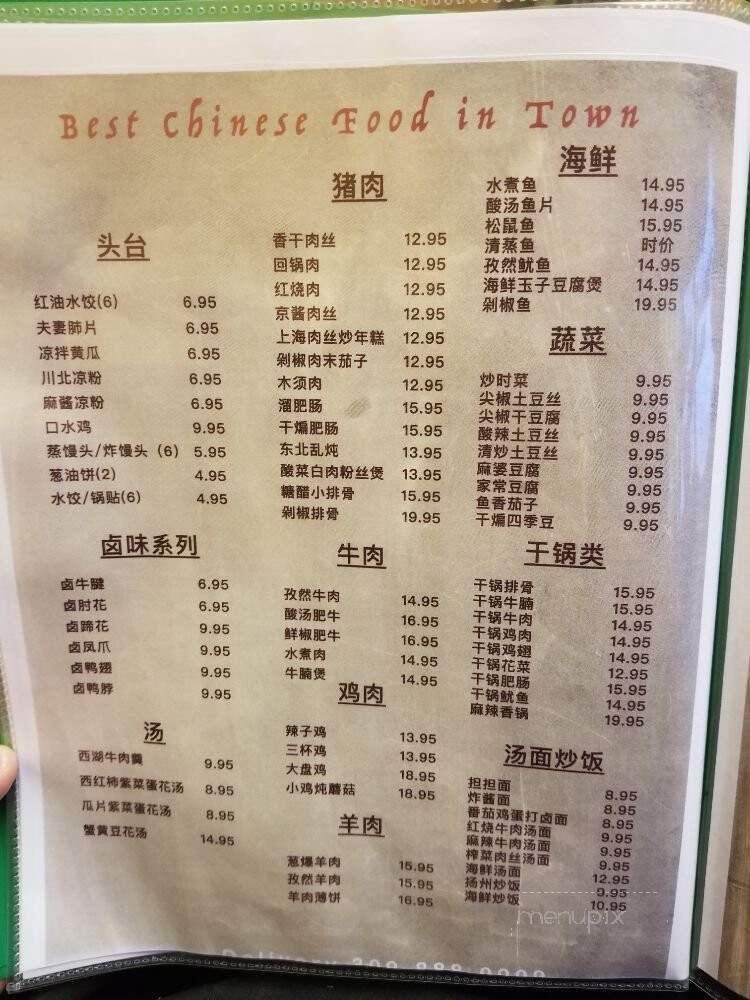 Best Chinese Food in Town
头台
红油水饺(6) 6.95
夫妻肺片 6.95
凉拌黄瓜 6.95
川北凉粉 6.95
麻酱凉粉 6.95
口水鸡 9.95
蒸馒头/炸馒头 (6) 5.95
葱油饼(2) 4.95
水饺/锅贴(6) 4.95
卤味系列
卤牛腱 6.95
卤肘花 6.95
卤蹄花 9.95
卤凤爪 9.95
卤鸭翅 9.95
卤鸭脖 9.95
汤
西湖牛肉羹 9.95
西红柿紫菜蛋花汤 8.95
瓜片紫菜蛋花汤 8.95
蟹黄豆花汤 14.95
猪肉
香干肉丝 12.95
回锅肉 12.95
红烧肉 12.95
京酱肉丝 12.95
上海肉丝炒年糕 12.95
剁椒肉末茄子 12.95
木须肉 12.95
溜肥肠 15.95
干煸肥肠 15.95
东北乱炖 13.95
酸菜白肉粉丝煲 13.95
糖醋小排骨 15.95
剁椒排骨 19.95
牛肉
孜然牛肉 14.95
酸汤肥牛 16.95
鲜椒肥牛 16.95
水煮肉 14.95
牛腩煲 14.95
鸡肉
辣子鸡 13.95
三杯鸡 13.95
大盘鸡 18.95
小鸡炖蘑菇 18.95
羊肉
葱爆羊肉 15.95
孜然羊肉 15.95
羊肉薄饼 16.95
海鲜
水煮鱼 14.95
酸汤鱼片 14.95
松鼠鱼 15.95
清蒸鱼 时价
孜然鱿鱼 14.95
海鲜玉子豆腐煲 14.95
剁椒鱼 19.95
蔬菜
炒时菜 9.95
尖椒土豆丝 9.95
尖椒干豆腐 9.95
酸辣土豆丝 9.95
清炒土豆丝 9.95
麻婆豆腐 9.95
家常豆腐 9.95
鱼香茄子 9.95
干煸四季豆 9.95
干锅类
干锅排骨 15.95
干锅牛腩 15.95
干锅牛肉 14.95
干锅鸡肉 14.95
干锅鸡翅 14.95
干锅花菜 12.95
干锅肥肠 15.95
干锅鱿鱼 14.95
麻辣香锅 19.95
汤面炒饭
担担面 8.95
炸酱面 8.95
番茄鸡蛋打卤面 8.95
红烧牛肉汤面 9.95
麻辣牛肉汤面 9.95
榨菜肉丝汤面 9.95
海鲜汤面 12.95
扬州炒饭 9.95
海鲜炒饭 10.95
menupix